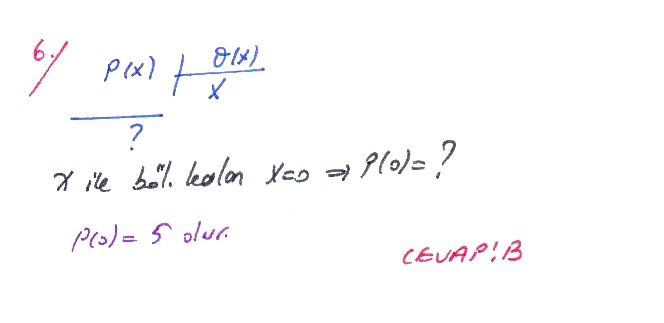 6./ P(x) | Q(x)
x
?
x ile böl. kalan x=0 ⇒ P(0)= ?
P(0)= 5 olur.
CEVAP: B